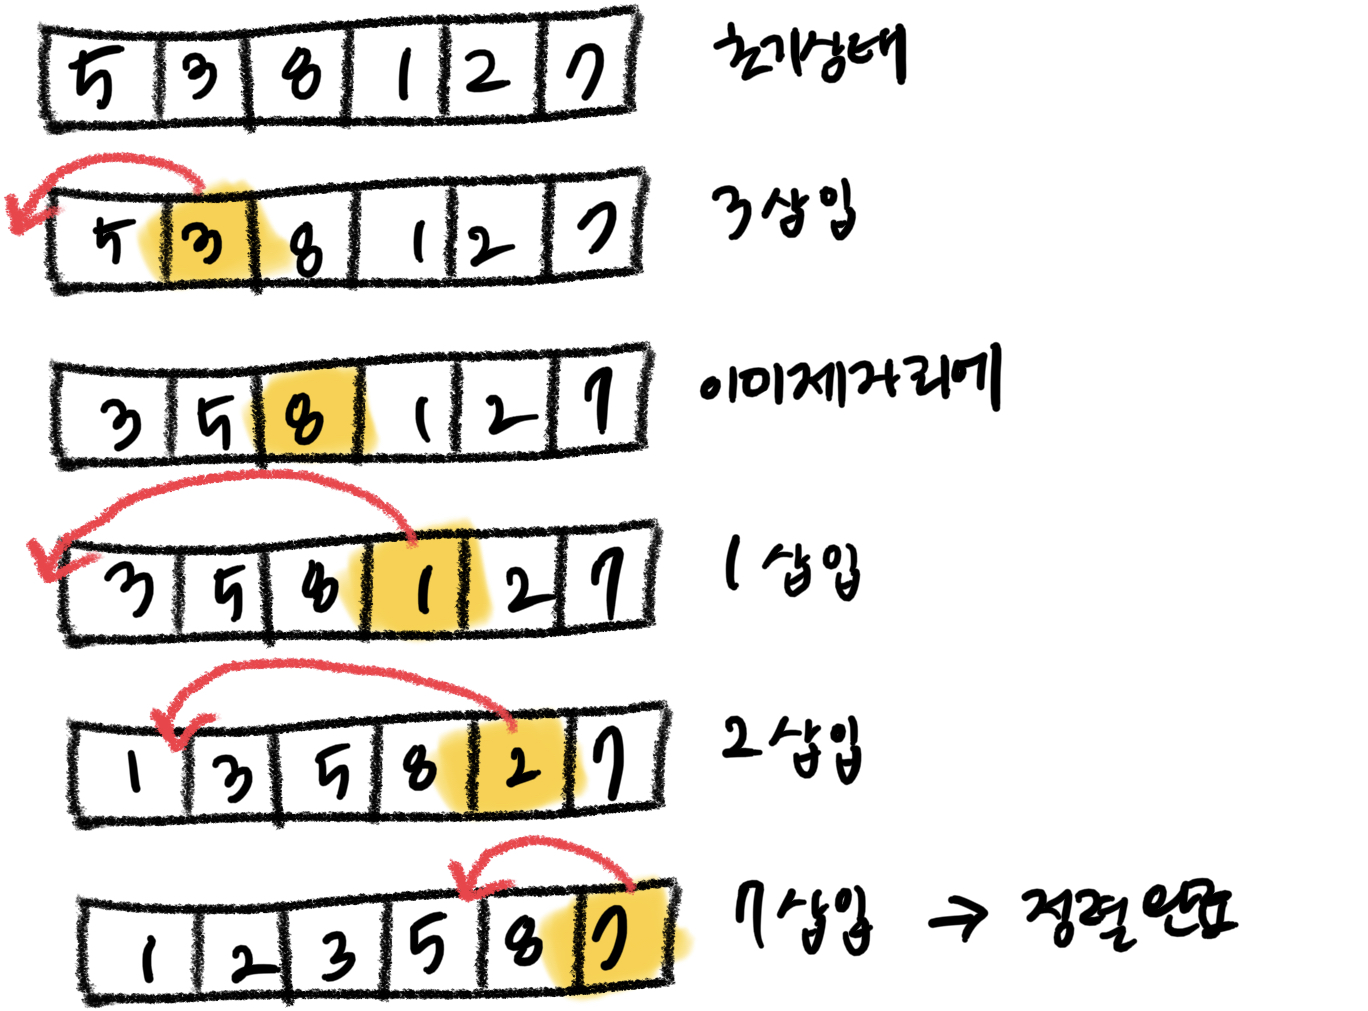 5 3 8 1 2 7 초기상태
5 3 8 1 2 7 3 삽입
3 5 8 1 2 7 이미제자리에
3 5 8 1 2 7 1 삽입
1 3 5 8 2 7 2 삽입
1 2 3 5 8 7 7 삽입 → 정렬 완료